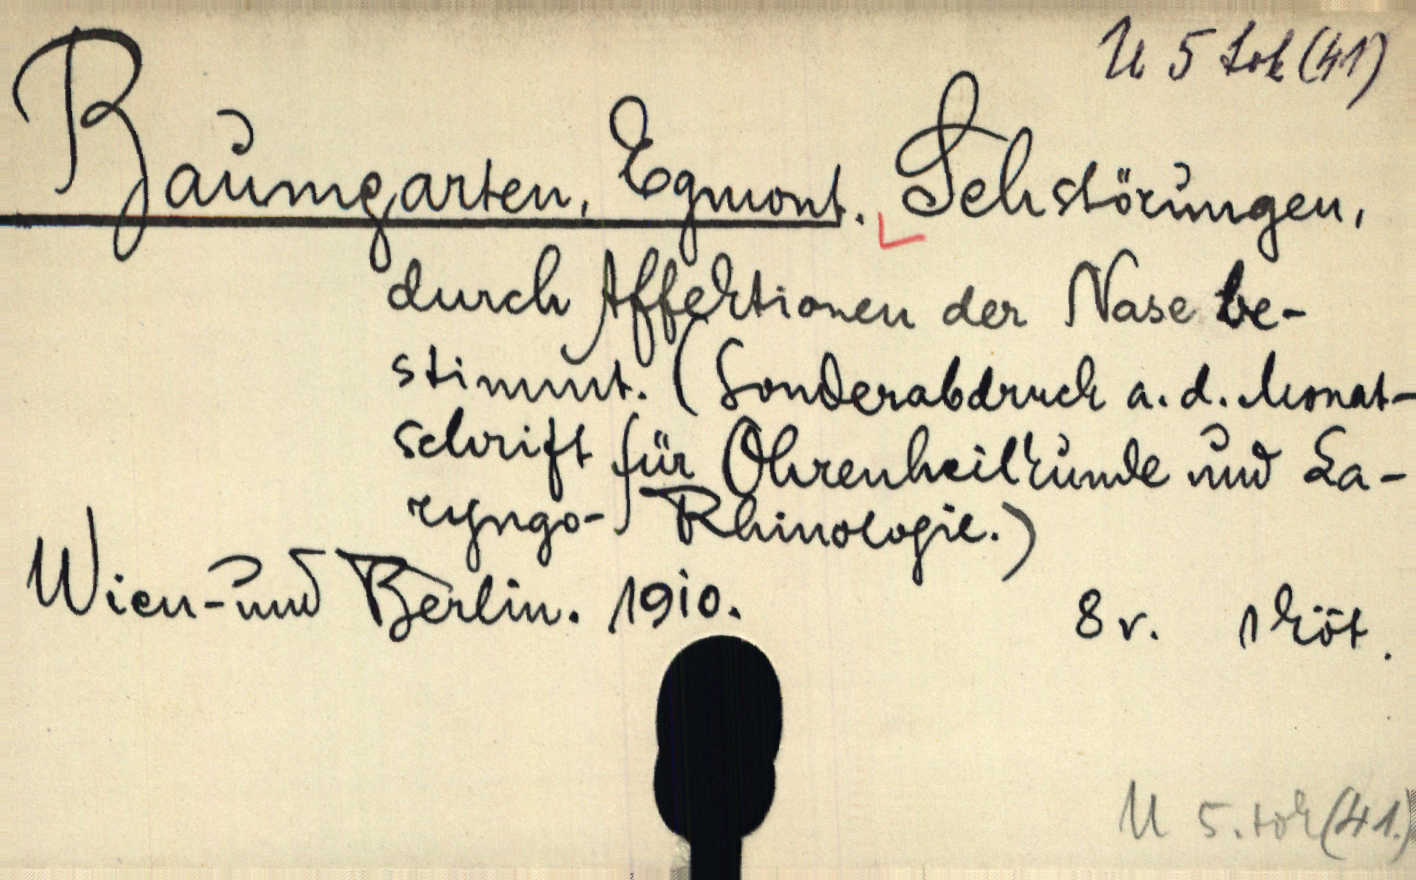 U 5 tok (41)
Baumgarten, Egmont. Sehstörungen,
durch Affektionen der Nase be-
stimmt. (Sonderabdruck a. d. Monat-
schrift für Ohrenheilkunde und La-
ryngo-Rhinologie.)
Wien-und Berlin. 1910. 8 v. 1 köt.
U 5. tok (41.)